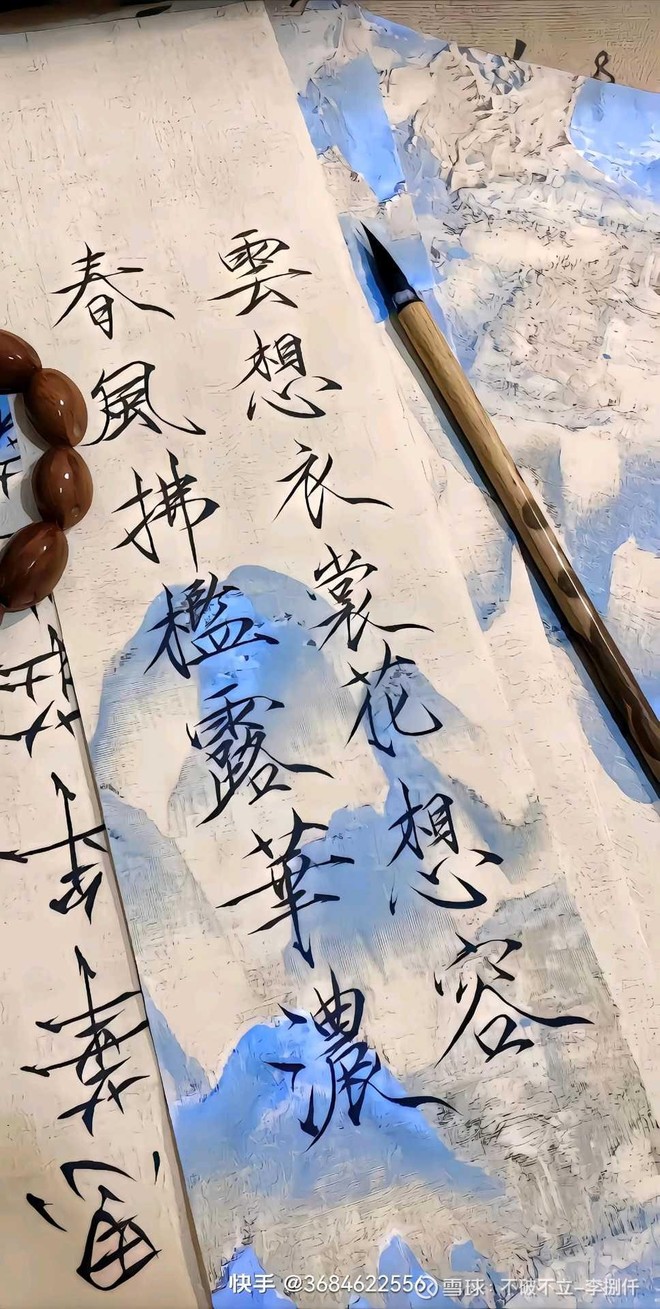 雲想衣裳花想容
春風拂檻露華濃
快手 @3684622556
雪球：不破不立-李捌仟